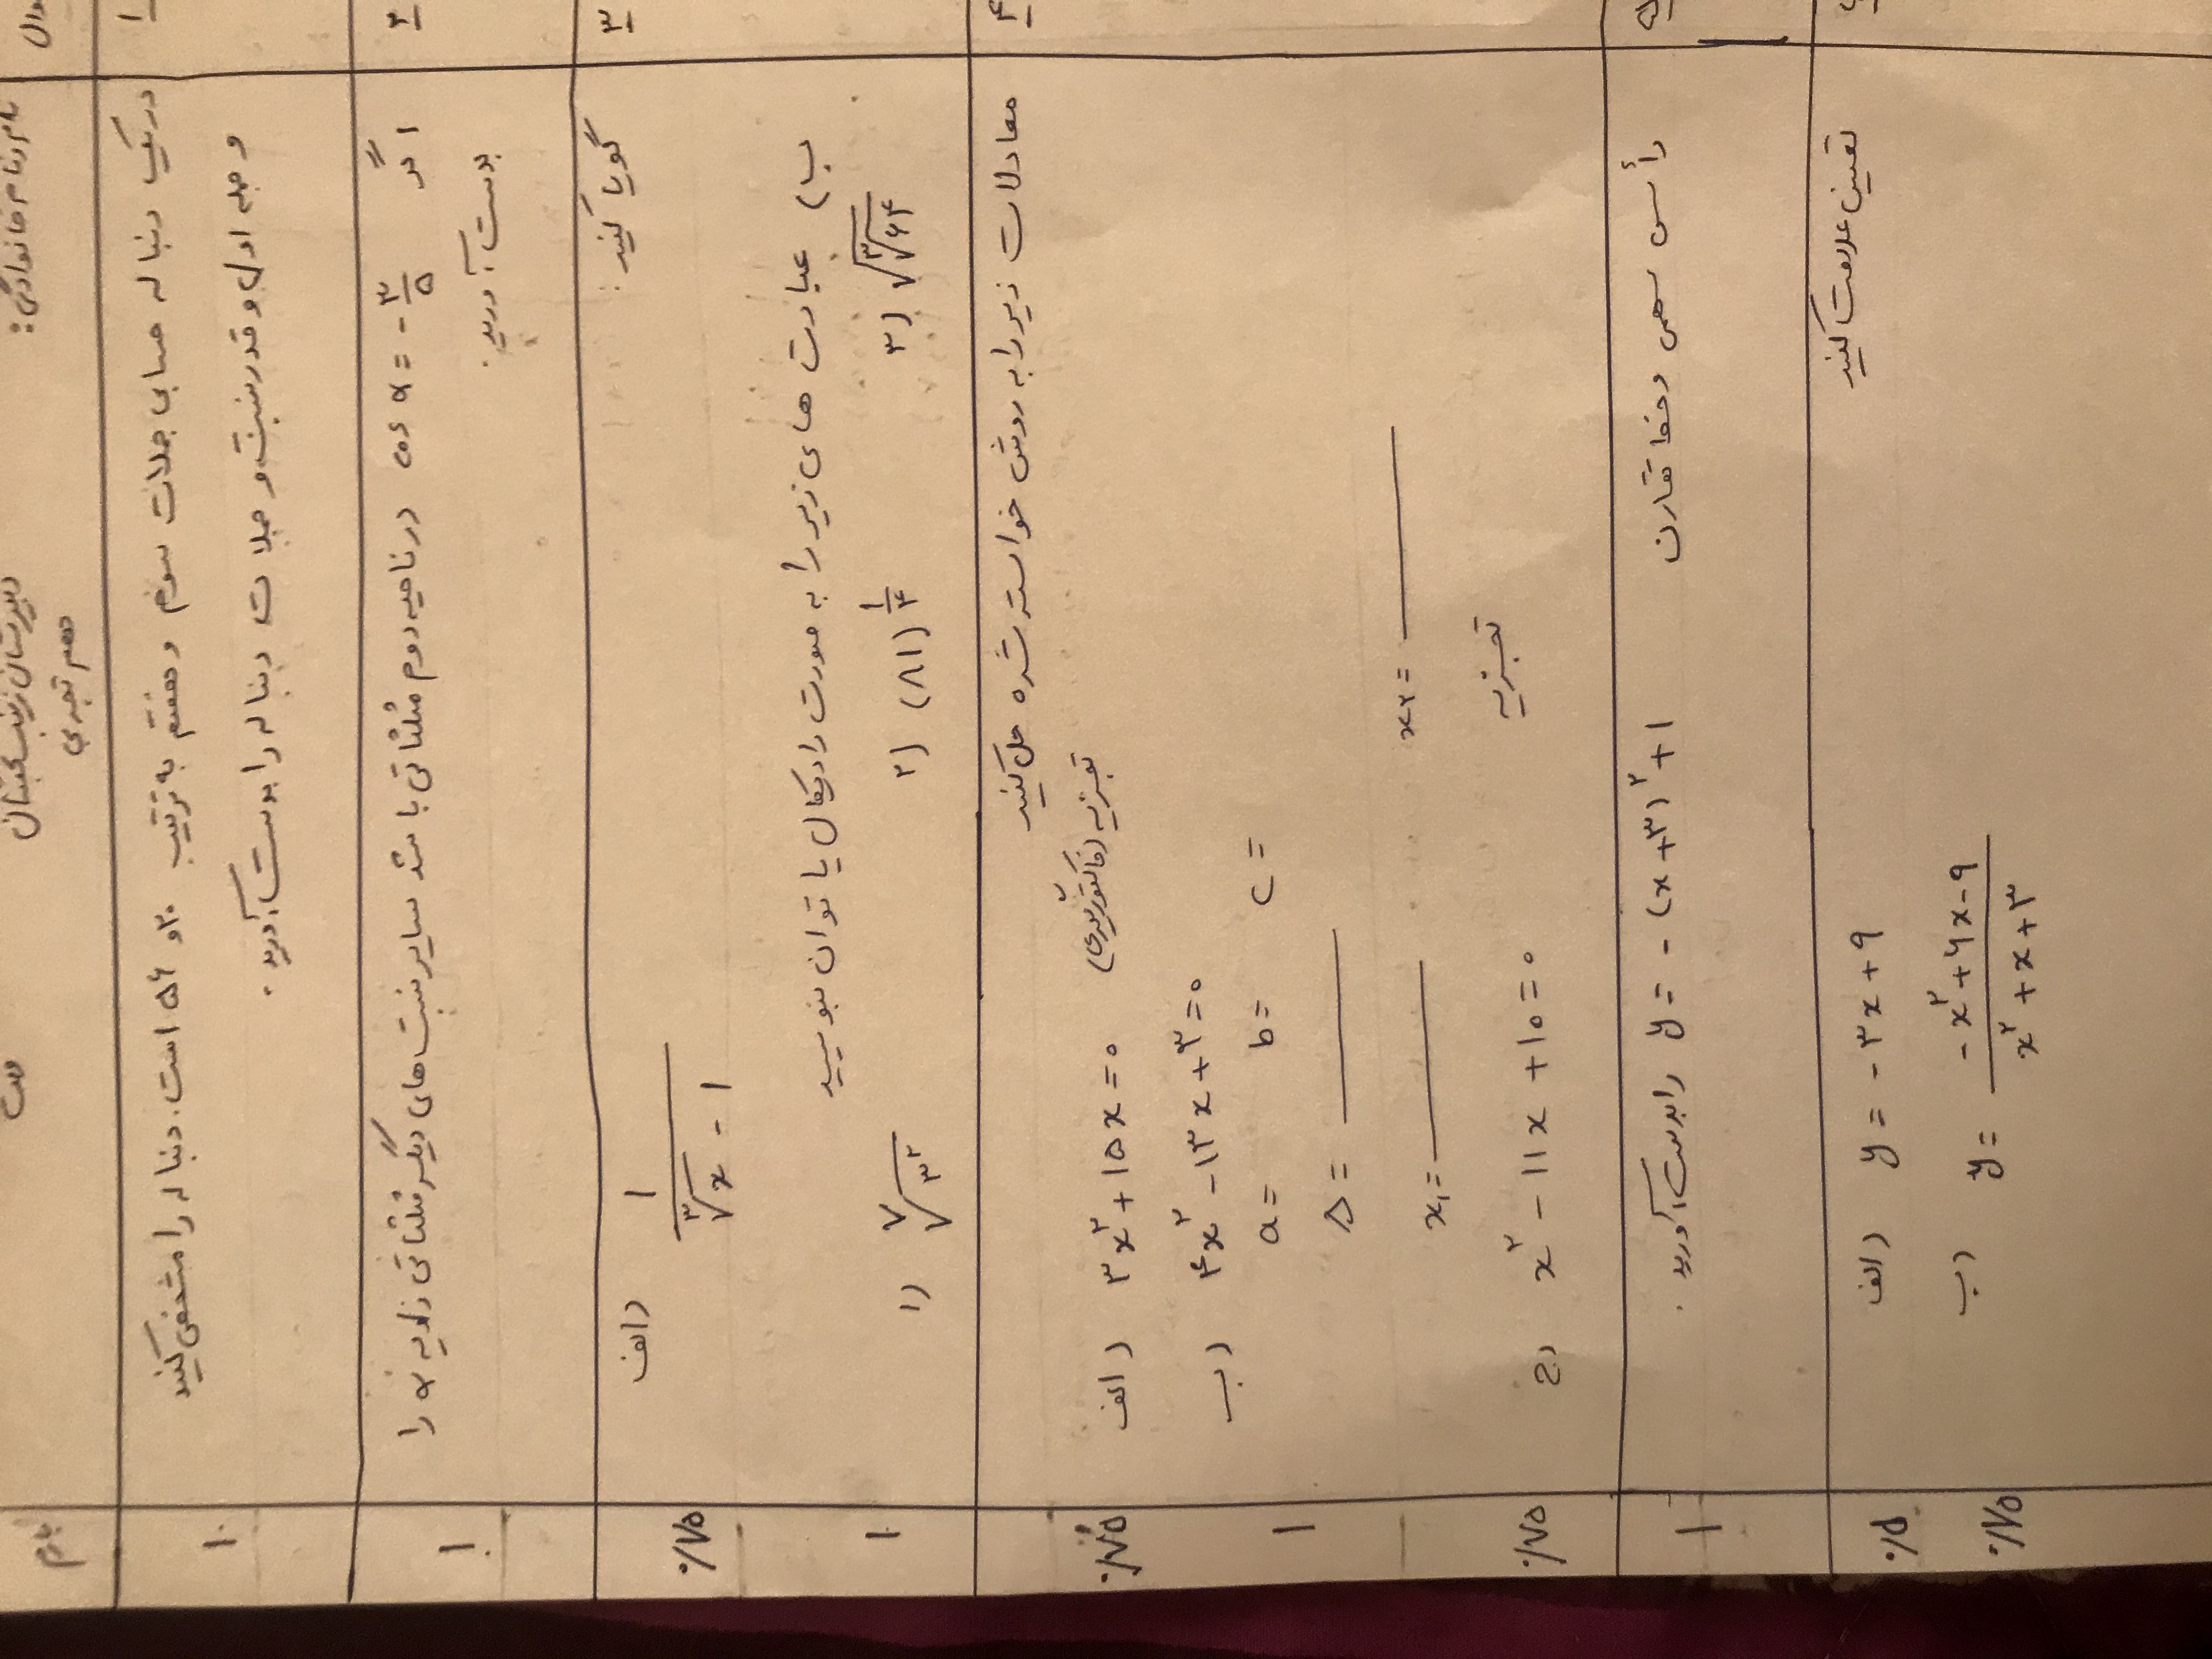 نام و نام خانوادگی: دبیرستان زینب کبری
سوال دهم تجربی بارم
۱ در یک دنباله حسابی جملات سوم و هفتم به ترتیب ۲۰ و ۵۶ است. دنباله را مشخص کنید ۱
و جمله اول و قدرنسبت و جملات دنباله را بدست آورید.
۲ اگر cos α = -۳/۵ در ناحیه دوم مثلثاتی باشد سایر نسبت های دیگر مثلثاتی زاویه α را ۱
بدست آورید.
۳ گویا کنید:
الف) 1/(∛x - 1) ۰/۷۵
ب) عبارت های زیر را به صورت رادیکال یا توان بنویسید
۱) ⁷√۳² ۲) (۸۱)^(۱/۴) ۳) √∛۶۴ ۱
۴ معادلات زیر را به روش خواسته شده حل کنید
الف) ۳x² + ۱۵x = ۰ تجزیه (فاکتورگیری) ۰/۷۵
ب) ۴x² - ۱۳x + ۳ = ۰
a = b = c = ۱
Δ =
x₁ = x₂ =
ج) x² - ۱۱x + ۱۰ = ۰ تجزیه ۰/۷۵
۵ رأس سهمی و خط تقارن y = -(x+۳)² + ۱ را بدست آورید. ۱
تعیین علامت کنید
الف) y = -۳x + ۹ ۰/۵
ب) y = (-x² + ۶x - ۹)/(x² + x + ۳) ۰/۷۵